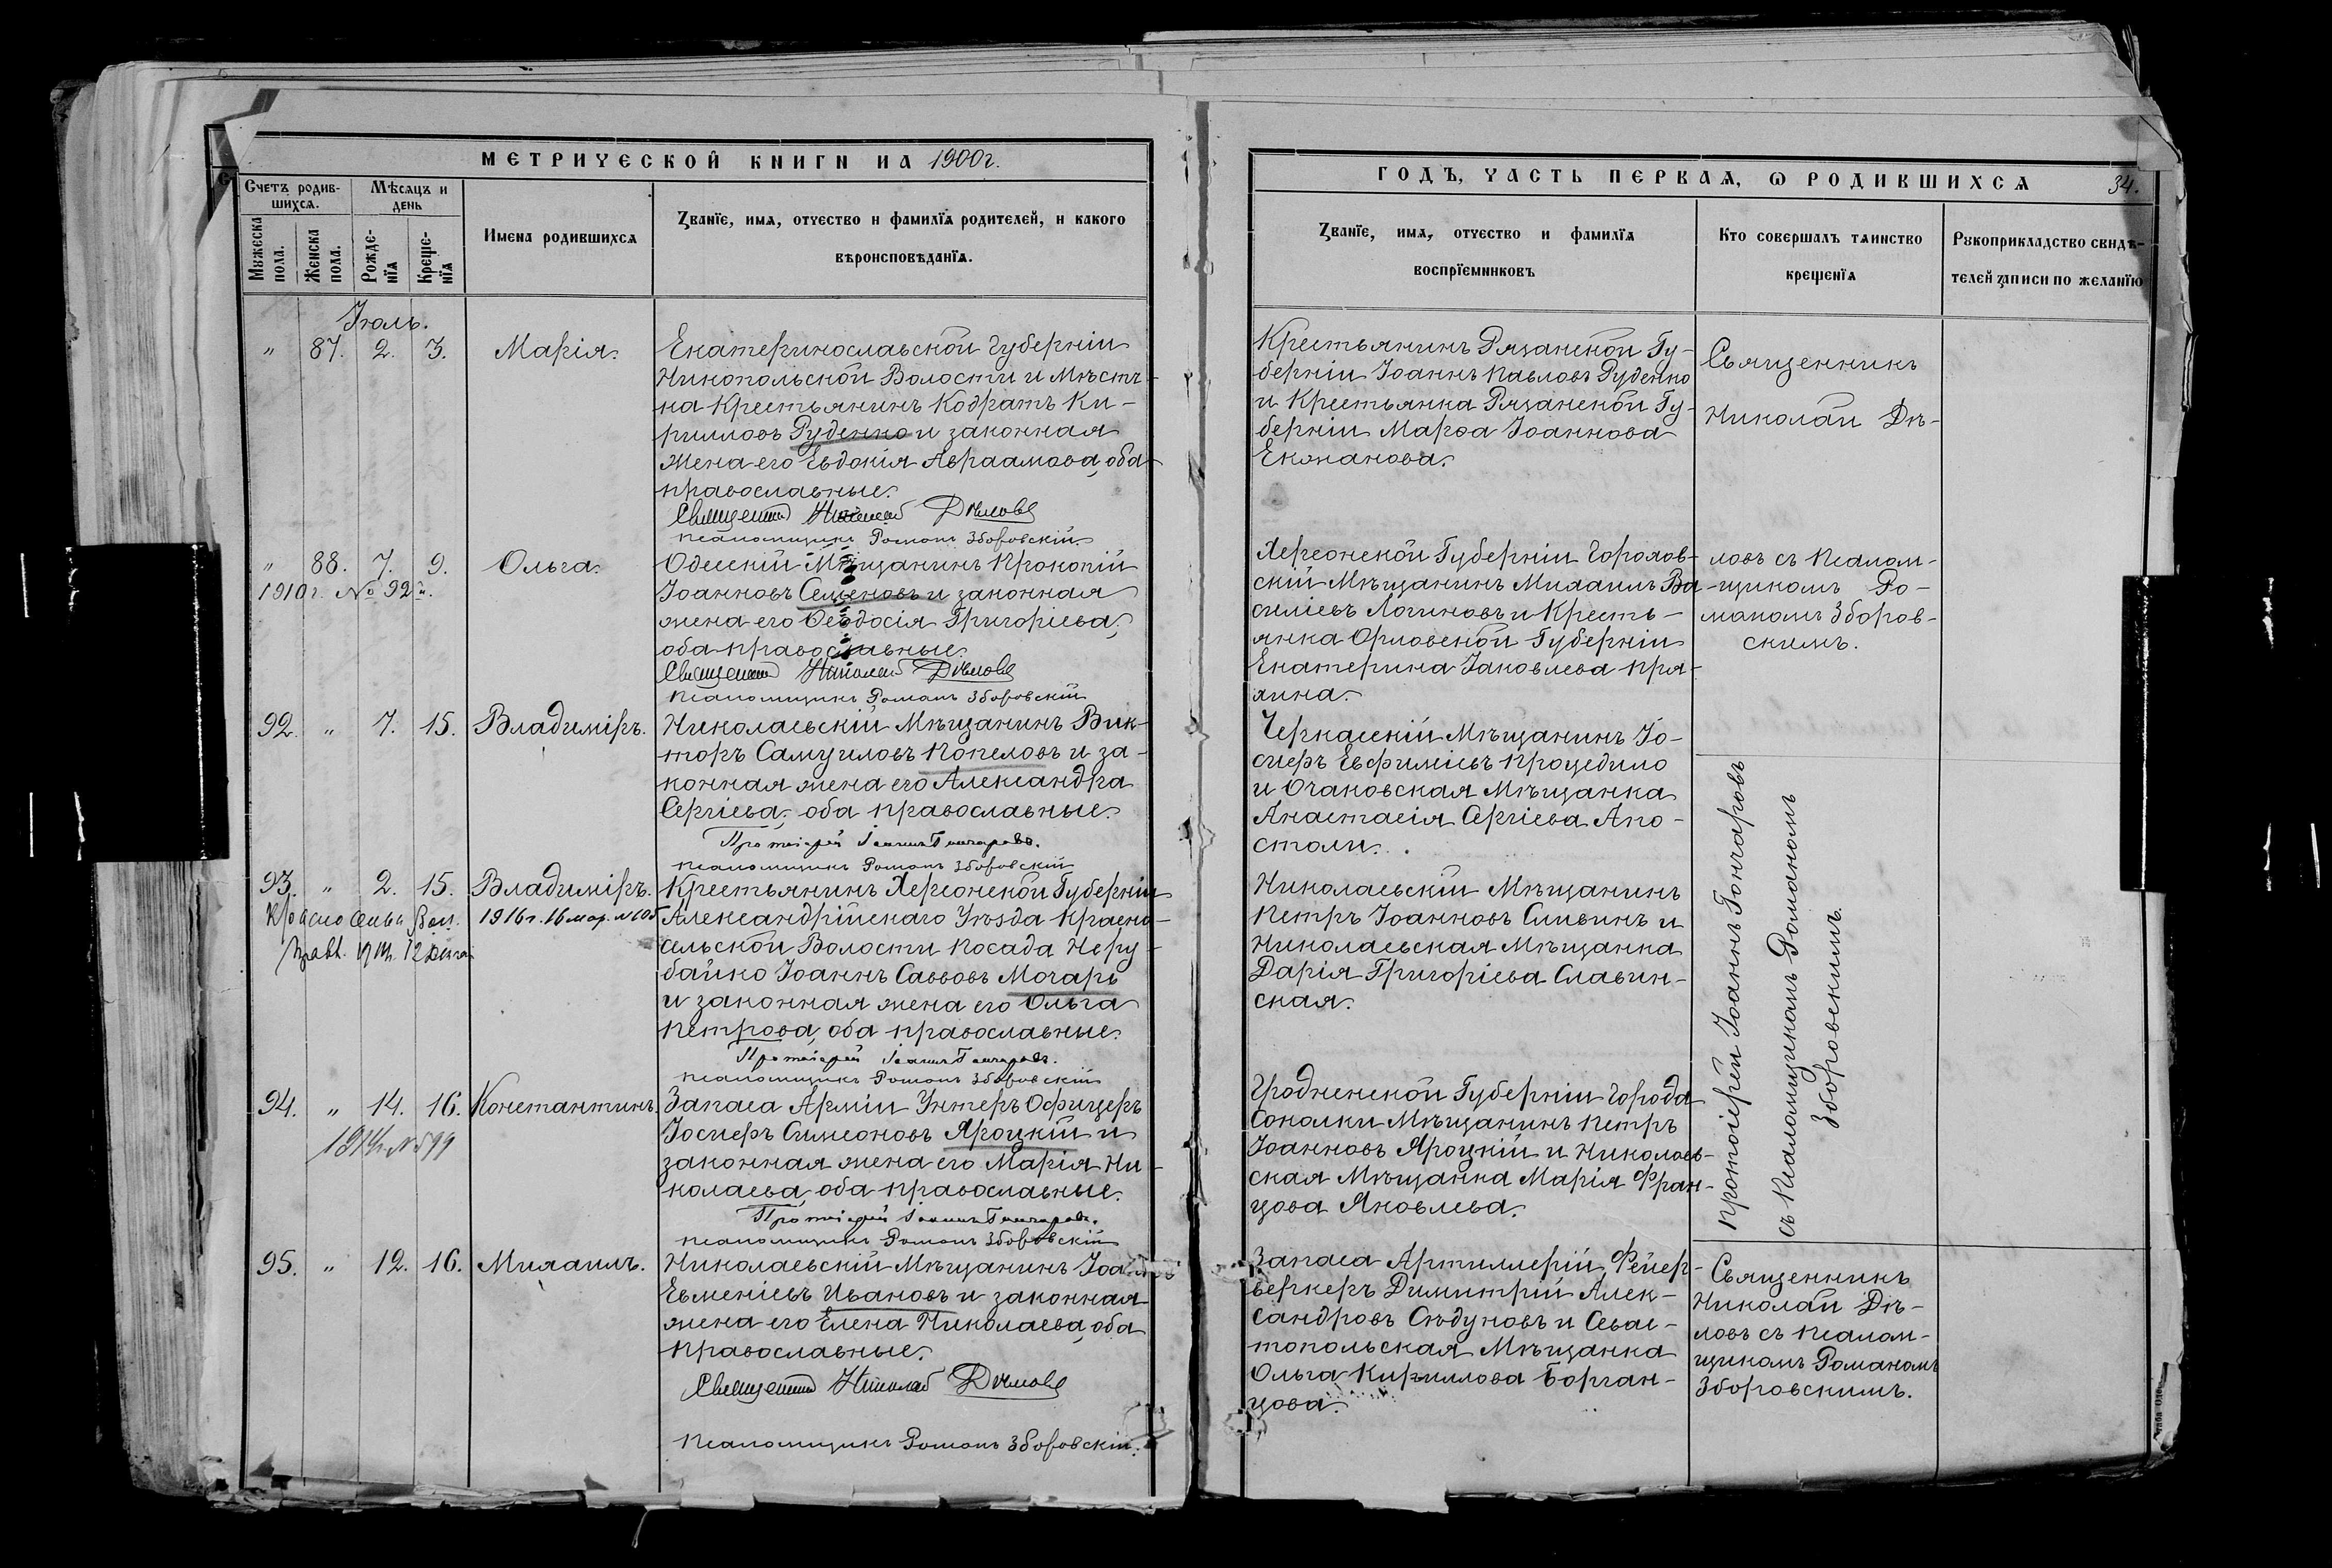 МЕТРИЧЕСКОЙ КНИГИ НА 1900 г.
Счетъ родив-
шихся.
Мужеска пола.
Женска пола.
Мѣсяцъ и
день
Рожде-
нія
Креще-
нія
Имена родившихся
Званіе, имя, отчество и фамилія родителей, и какого
вѣроисповѣданія.
Іюль.
" 87. 2. 3. Марія.
Екатеринославской Губерніи
Никопольской Волости и Мѣстч-
ка Крестьянинъ Кодратъ Ки-
рилловъ Руденко и законная
жена его Евдокія Авраамова, оба
православные.
Священникъ Николай Дѣловъ
Псаломщикъ Романъ Зборовскій
" 88. 7. 9. Ольга.
1910 г. № 92
Одесскій Мѣщанинъ Прокопій
Іоанновъ Семеновъ и законная
жена его Ѳеодосія Григоріева,
оба православные.
Священникъ Николай Дѣловъ
Псаломщикъ Романъ Зборовскій
92. " 7. 15. Владиміръ.
Николаевскій Мѣщанинъ Вик-
торъ Самуиловъ Копеловъ и за-
конная жена его Александра
Сергіева, оба православные.
Протоіерей Іоаннъ Гончаровъ.
Псаломщикъ Романъ Зборовскій
93. " 2. 15. Владиміръ.
Красносельск Вол.
1916 г. 16 мар. №
Прав.
Крестьянинъ Херсонской Губерніи
Александрійскаго Уѣзда Красно-
сельской Волости Посада Неру-
байко Іоаннъ Савовъ Мочарь
и законная жена его Ольга
Петрова, оба православные.
Протоіерей Іоаннъ Гончаровъ.
Псаломщикъ Романъ Зборовскій
94. " 14. 16. Константинъ.
Запаса Арміи Унтеръ Офицеръ
Іосифъ Симеоновъ Яроцкій и
законная жена его Марія Ни-
колаева, оба православные.
Протоіерей Іоаннъ Гончаровъ.
Псаломщикъ Романъ Зборовскій
95. " 12. 16. Михаилъ.
Николаевскій Мѣщанинъ Іоаннъ
Евменіевъ Ивановъ и законная
жена его Елена Николаева, оба
православные.
Священникъ Николай Дѣловъ
Псаломщикъ Романъ Зборовскій.
ГОДЪ, ЧАСТЬ ПЕРВАЯ, О РОДИВШИХСЯ 34.
Званіе, имя, отчество и фамилія
воспріемниковъ
Кто совершалъ таинство
крещенія
Рукоприкладство свидѣ-
телей записи по желанію
Крестьянинъ Рязанской Гу-
берніи Іоаннъ Павловъ Руденко
и Крестьянка Рязанской Гу-
берніи Марѳа Іоаннова
Екжанова.
Священникъ
Николай Дѣ-
Херсонской Губерніи Горолов-
скій Мѣщанинъ Михаилъ Ва-
силіевъ Логиновъ и Кресть-
янка Орловской Губерніи
Екатерина Іаковлева Пря-
хина.
ловъ съ Псалом-
щикомъ Ро-
маномъ Зборов-
скимъ.
Черкасскій Мѣщанинъ Іо-
сифъ Евфиміевъ Процедило
и Очаковская Мѣщанка
Анастасія Сергіева Апо-
столи.
Николаевскій Мѣщанинъ
Петръ Іоанновъ Сливинъ и
Николаевская Мѣщанка
Дарія Григоріева Славин-
ская.
Гродненской Губерніи Города
Соколки Мѣщанинъ Петръ
Іоанновъ Яроцкій и Николаев-
ская Мѣщанка Марія Фран-
цова Яковлева.
Протоіерей Іоаннъ Гончаровъ
съ Псаломщикомъ Романомъ
Зборовскимъ.
Запаса Артиллеріи Фейер-
веркеръ Димитрій Алек-
сандровъ Сѣдуновъ и Севас-
топольская Мѣщанка
Ольга Кириллова Борган-
цова.
Священникъ
Николай Дѣ-
ловъ съ Псалом-
щикомъ Романомъ
Зборовскимъ.